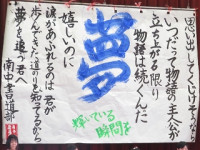 思い出してくじけそうなとき
いつだって物語の主人公が
立ち上がる限り
物語は続くんだ
夢
嬉しいのに
涙があふれるのは君が
歩んできた道のりを知ってるから
夢を追う君へ
南中書道部
輝いている
時間を